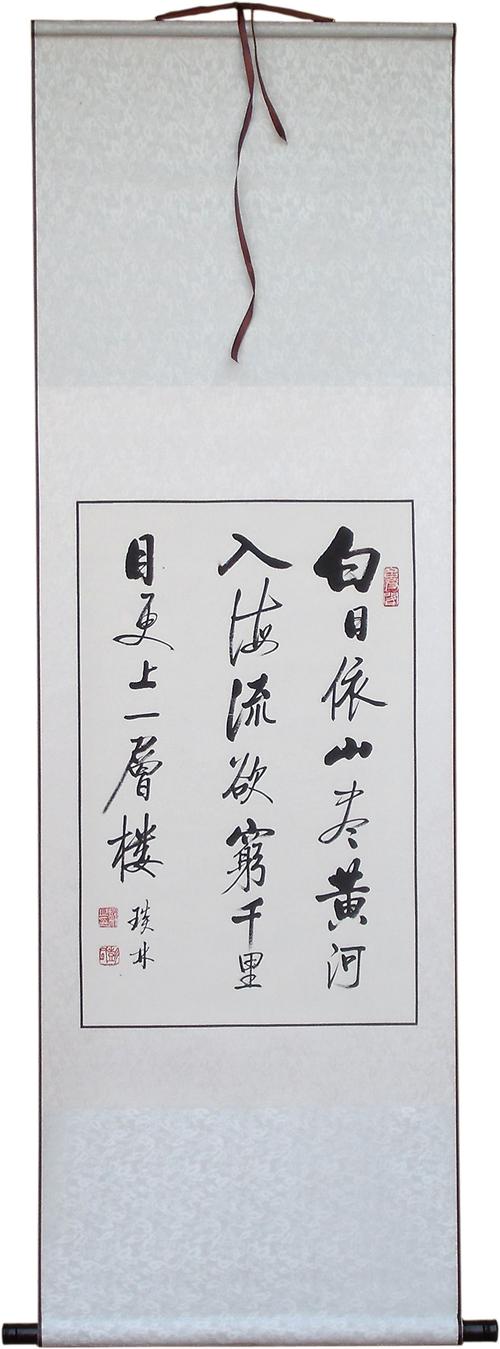 白日依山尽黄河
入海流欲窮千里
目更上一層楼
琰林